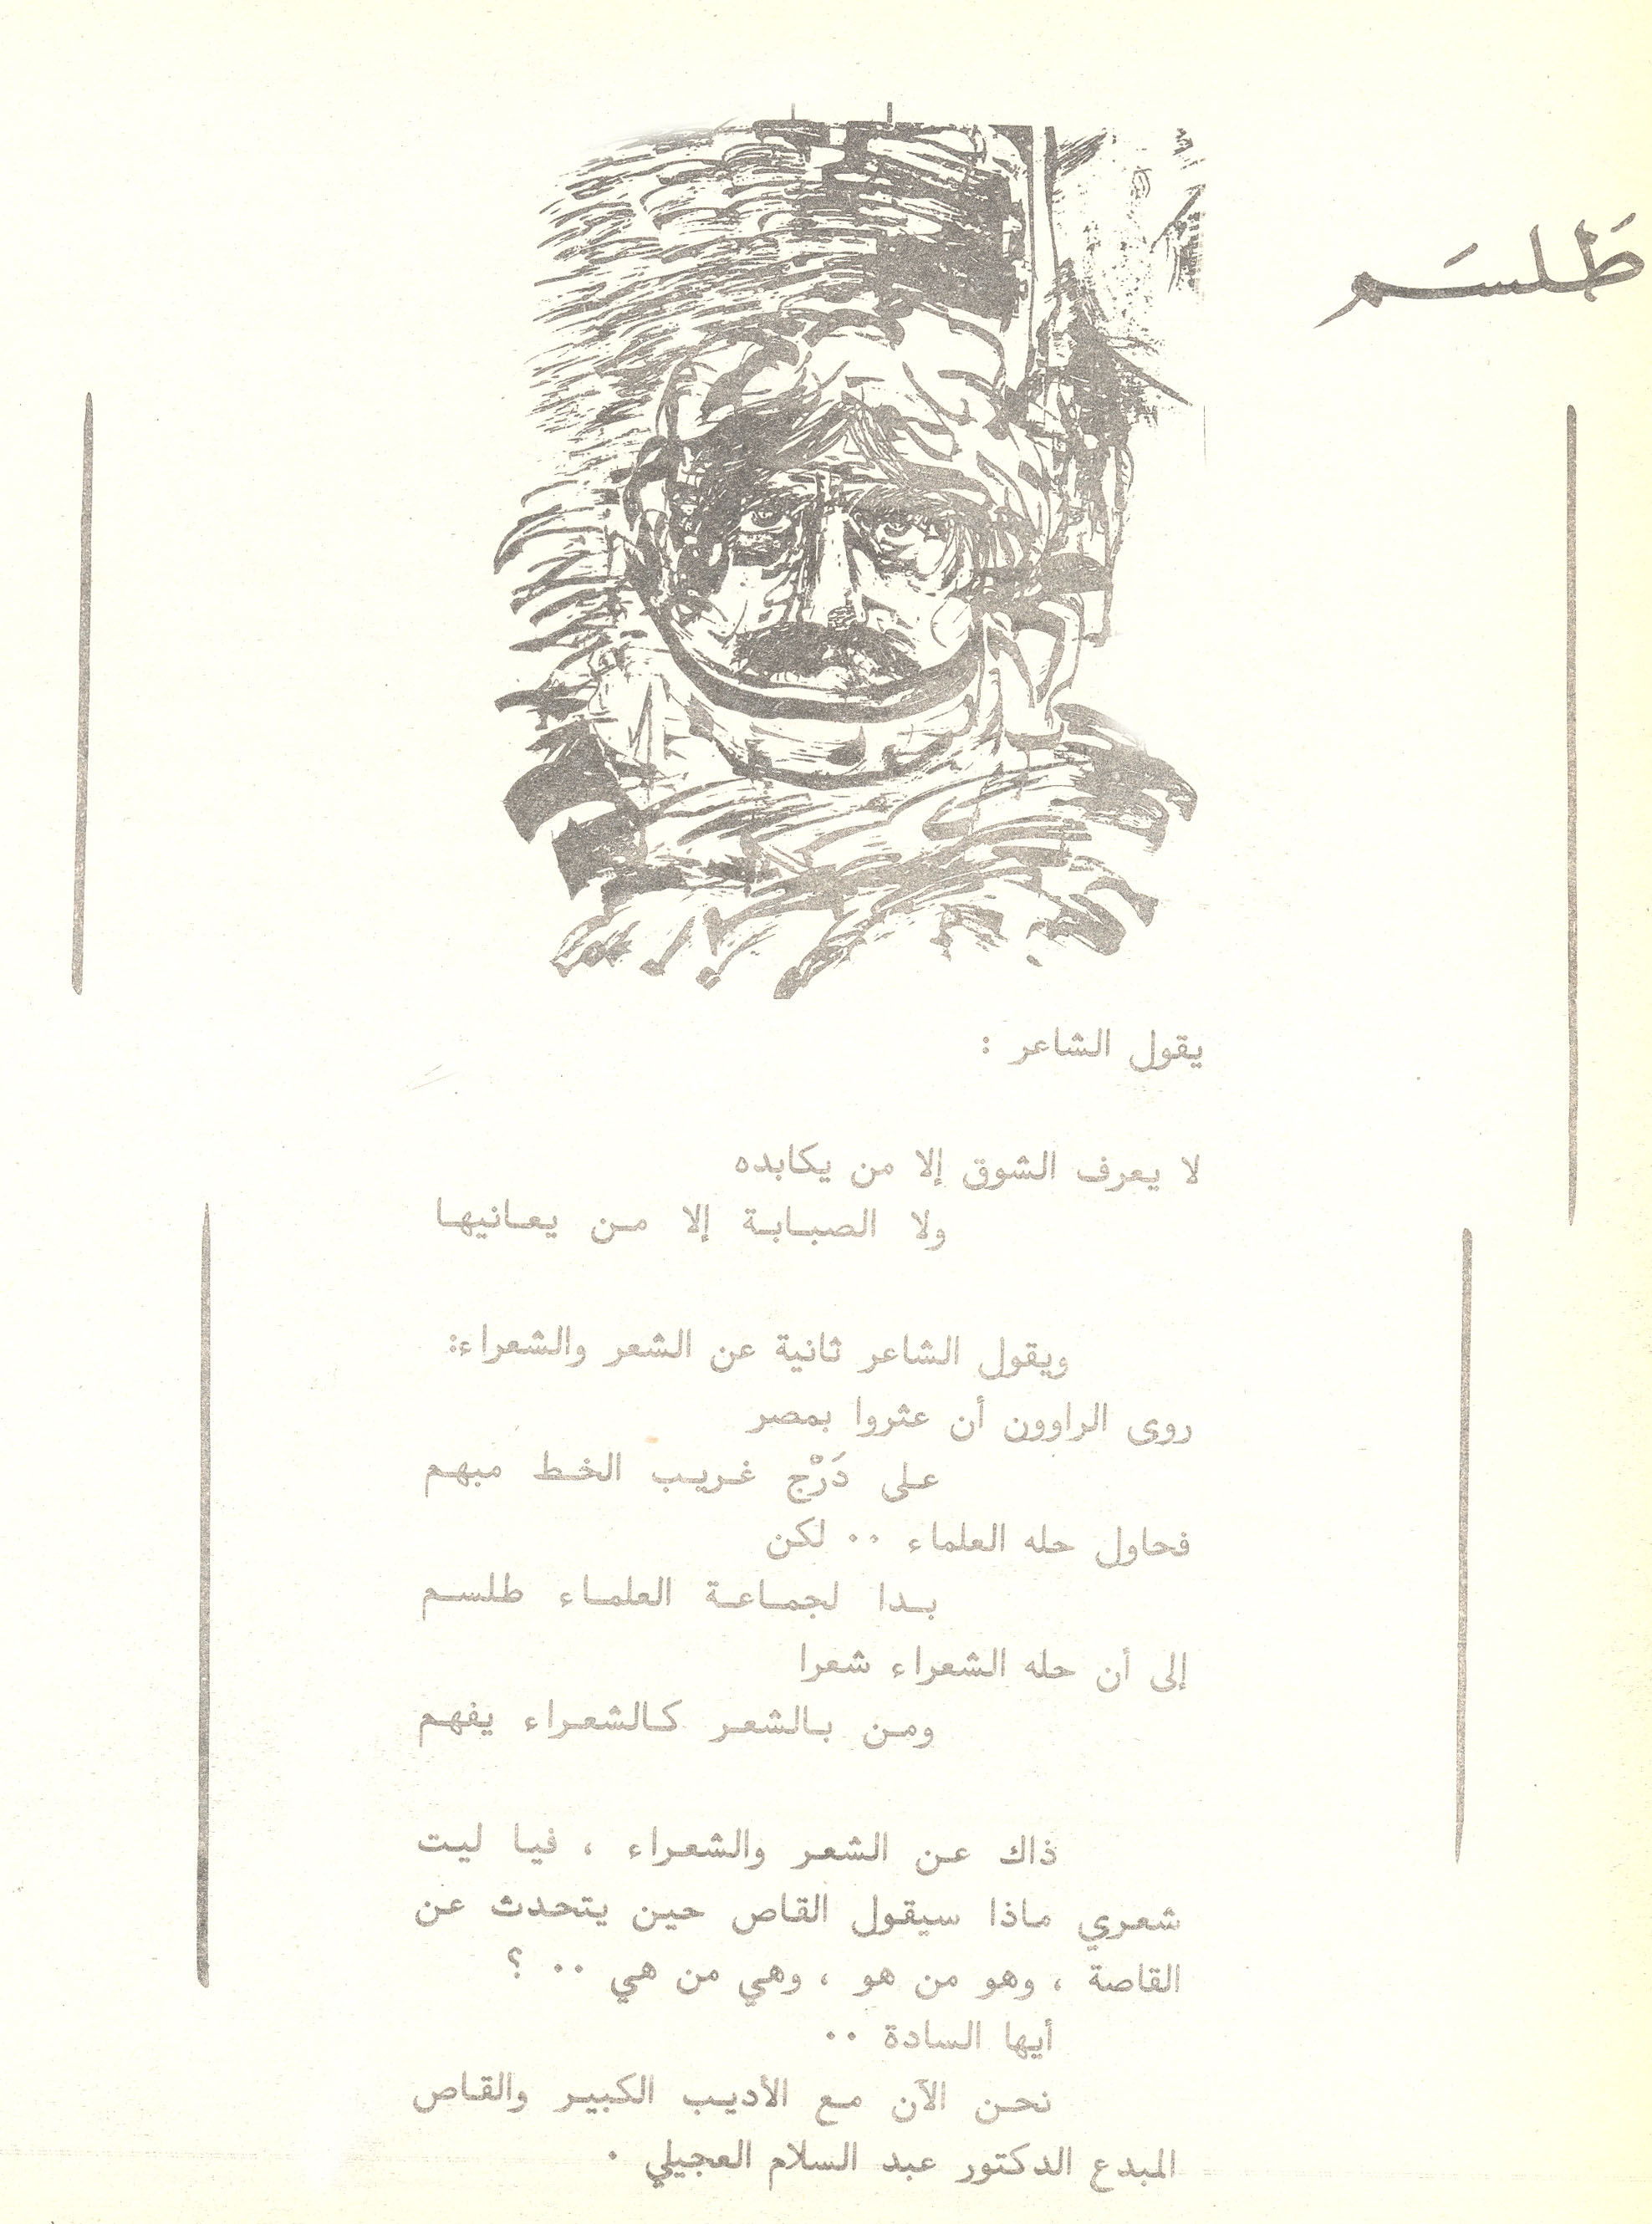 طَلسَم
يقول الشاعر :
لا يعرف الشوق إلا من يكابده
ولا الصبابة إلا من يعانيها
ويقول الشاعر ثانية عن الشعر والشعراء:
روى الراوون أن عثروا بمصر
على دَرْج غريب الخط مبهم
فحاول حله العلماء .. لكن
بدا لجماعة العلماء طلسم
إلى أن حله الشعراء شعرا
ومن بالشعر كالشعراء يفهم
ذاك عن الشعر والشعراء ، فيا ليت
شعري ماذا سيقول القاص حين يتحدث عن
القاصة ، وهو من هو ، وهي من هي .. ؟
أيها السادة ..
نحن الآن مع الأديب الكبير والقاص
المبدع الدكتور عبد السلام العجيلي .